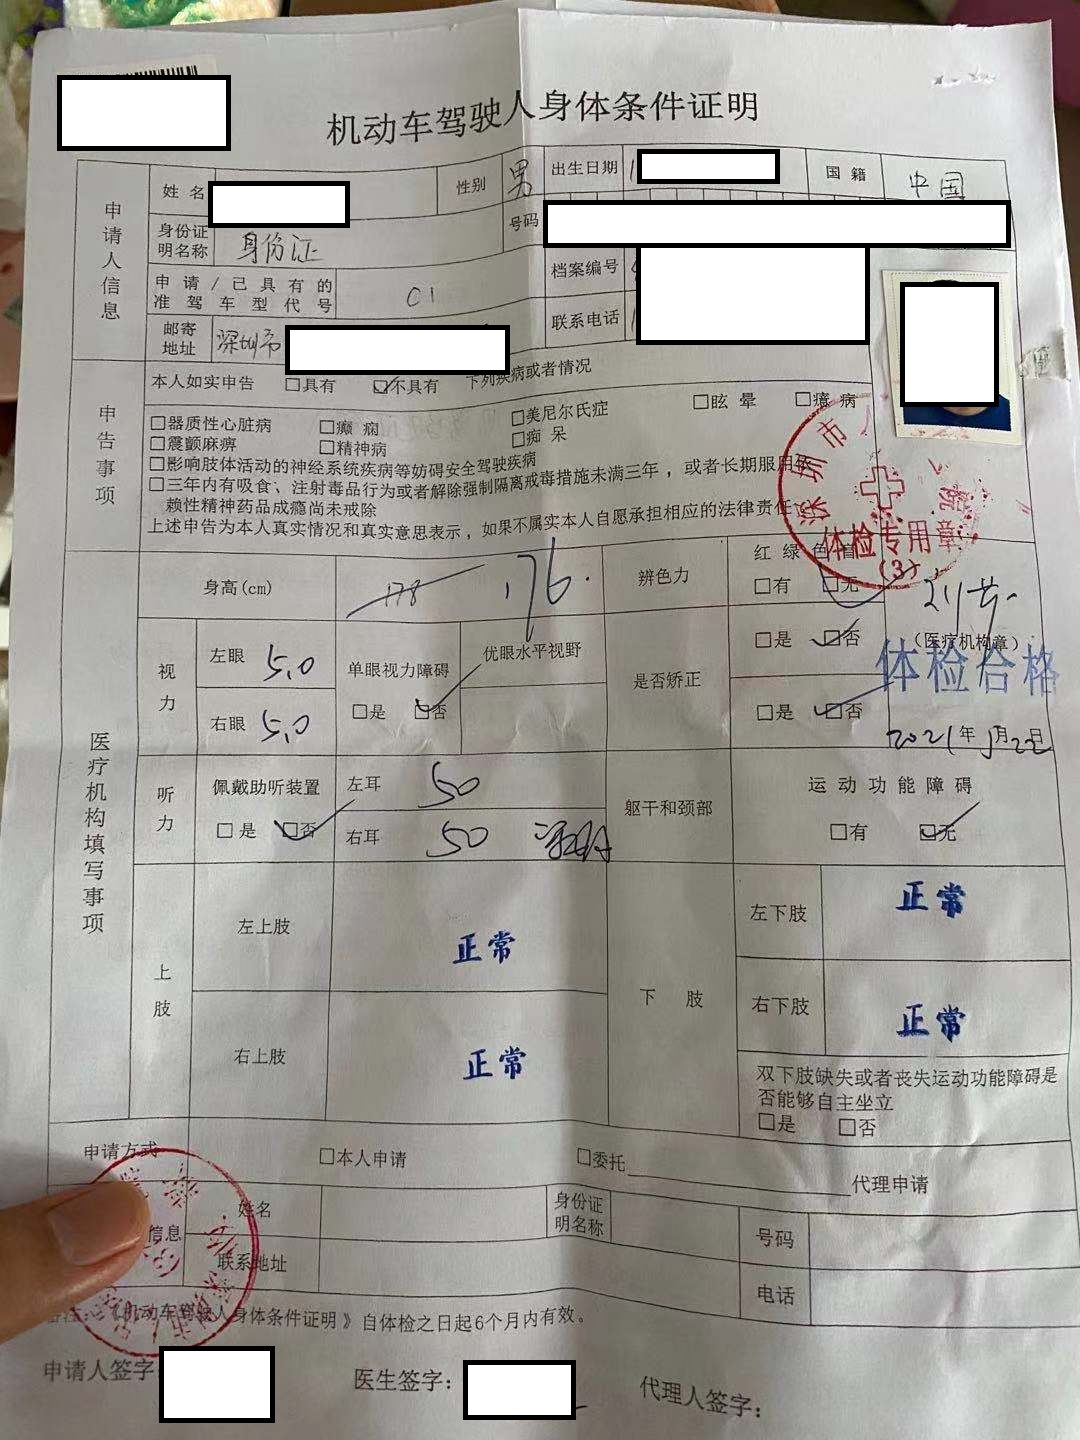 机动车驾驶人身体条件证明
申请人信息
姓名
性别 男
出生日期
国籍 中国
身份证明名称 身份证
号码
申请/已具有的准驾车型代号 C1
档案编号
邮寄地址 深圳市
联系电话
申告事项
本人如实申告 □具有 ☑不具有 下列疾病或者情况
□器质性心脏病 □癫痫 □美尼尔氏症 □眩晕 □癔病
□震颤麻痹 □精神病 □痴呆
□影响肢体活动的神经系统疾病等妨碍安全驾驶疾病
□三年内有吸食、注射毒品行为或者解除强制隔离戒毒措施未满三年，或者长期服用
赖性精神药品成瘾尚未戒除
上述申告为本人真实情况和真实意思表示，如果不属实本人自愿承担相应的法律责任
深圳市
院
体检专用章
(3)
医疗机构填写事项
身高(cm) 178 176
辨色力
红绿色盲
□有 ☑无
视力
左眼 5.0
右眼 5.0
单眼视力障碍
□是 ☑否
优眼水平视野
是否矫正
□是 ☑否
□是 ☑否
(医疗机构章)
体检合格
2021年 月22日
听力
佩戴助听装置
□是 ☑否
左耳 50
右耳 50
躯干和颈部
运动功能障碍
□有 ☑无
上肢
左上肢 正常
右上肢 正常
下肢
左下肢 正常
右下肢 正常
双下肢缺失或者丧失运动功能障碍是
否能够自主坐立
□是 □否
申请方式
□本人申请 □委托 代理申请
信息
姓名
身份证明名称
号码
联系地址
电话
注：《机动车驾驶人身体条件证明》自体检之日起6个月内有效。
申请人签字
医生签字：
代理人签字：